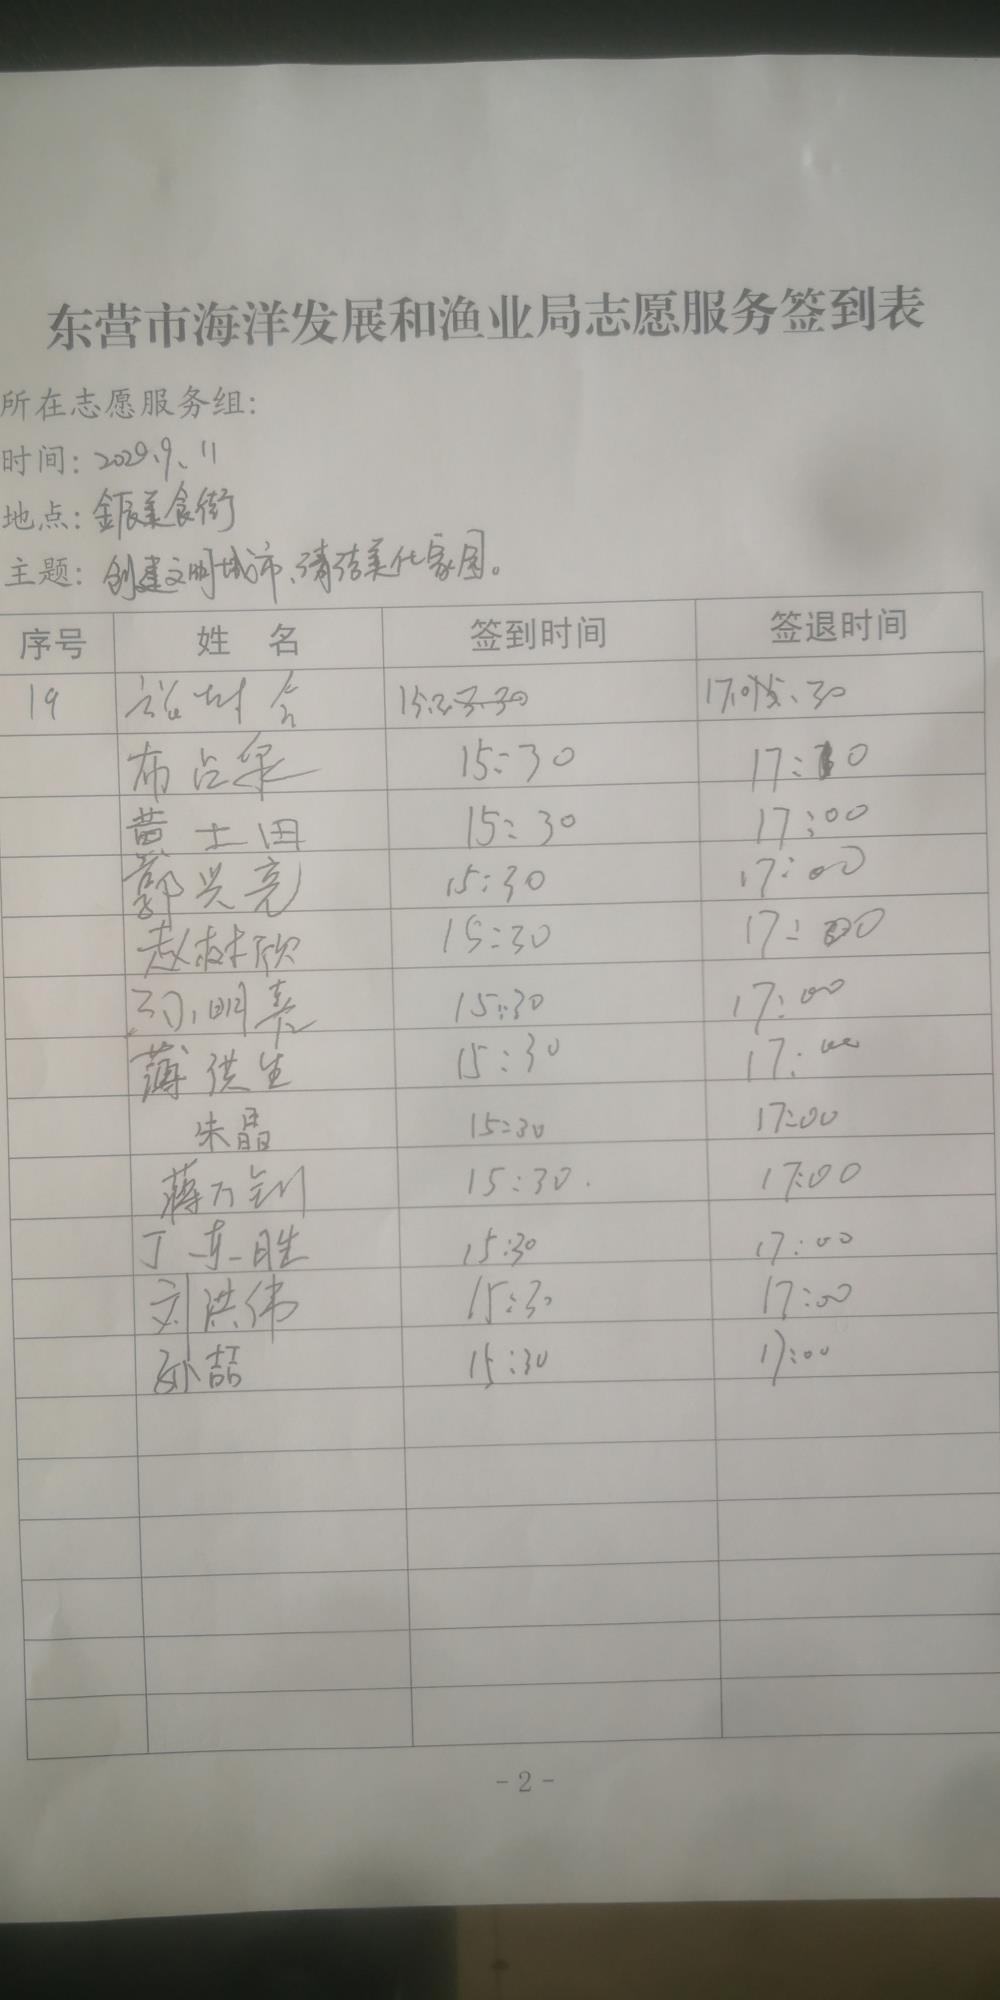 东营市海洋发展和渔业局志愿服务签到表
所在志愿服务组:
时间: 2029.9.11
地点: 金辰美食街
主题: 创建文明城市、清洁美化家园。
序号 姓 名 签到时间 签退时间
19
布占 15:30 17:10
黄士田 15:30 17:00
郭兴亮 15:30 17:00
赵林欣 15:30 17:00
明 15:30 17:00
薄洪生 15:30 17:00
朱晶 15:30 17:00
蒋万钊 15:30. 17:00
丁东胜 15:30 17:00
刘洪伟 15:30 17:00
孙喆 15:30 17:00
- 2 -